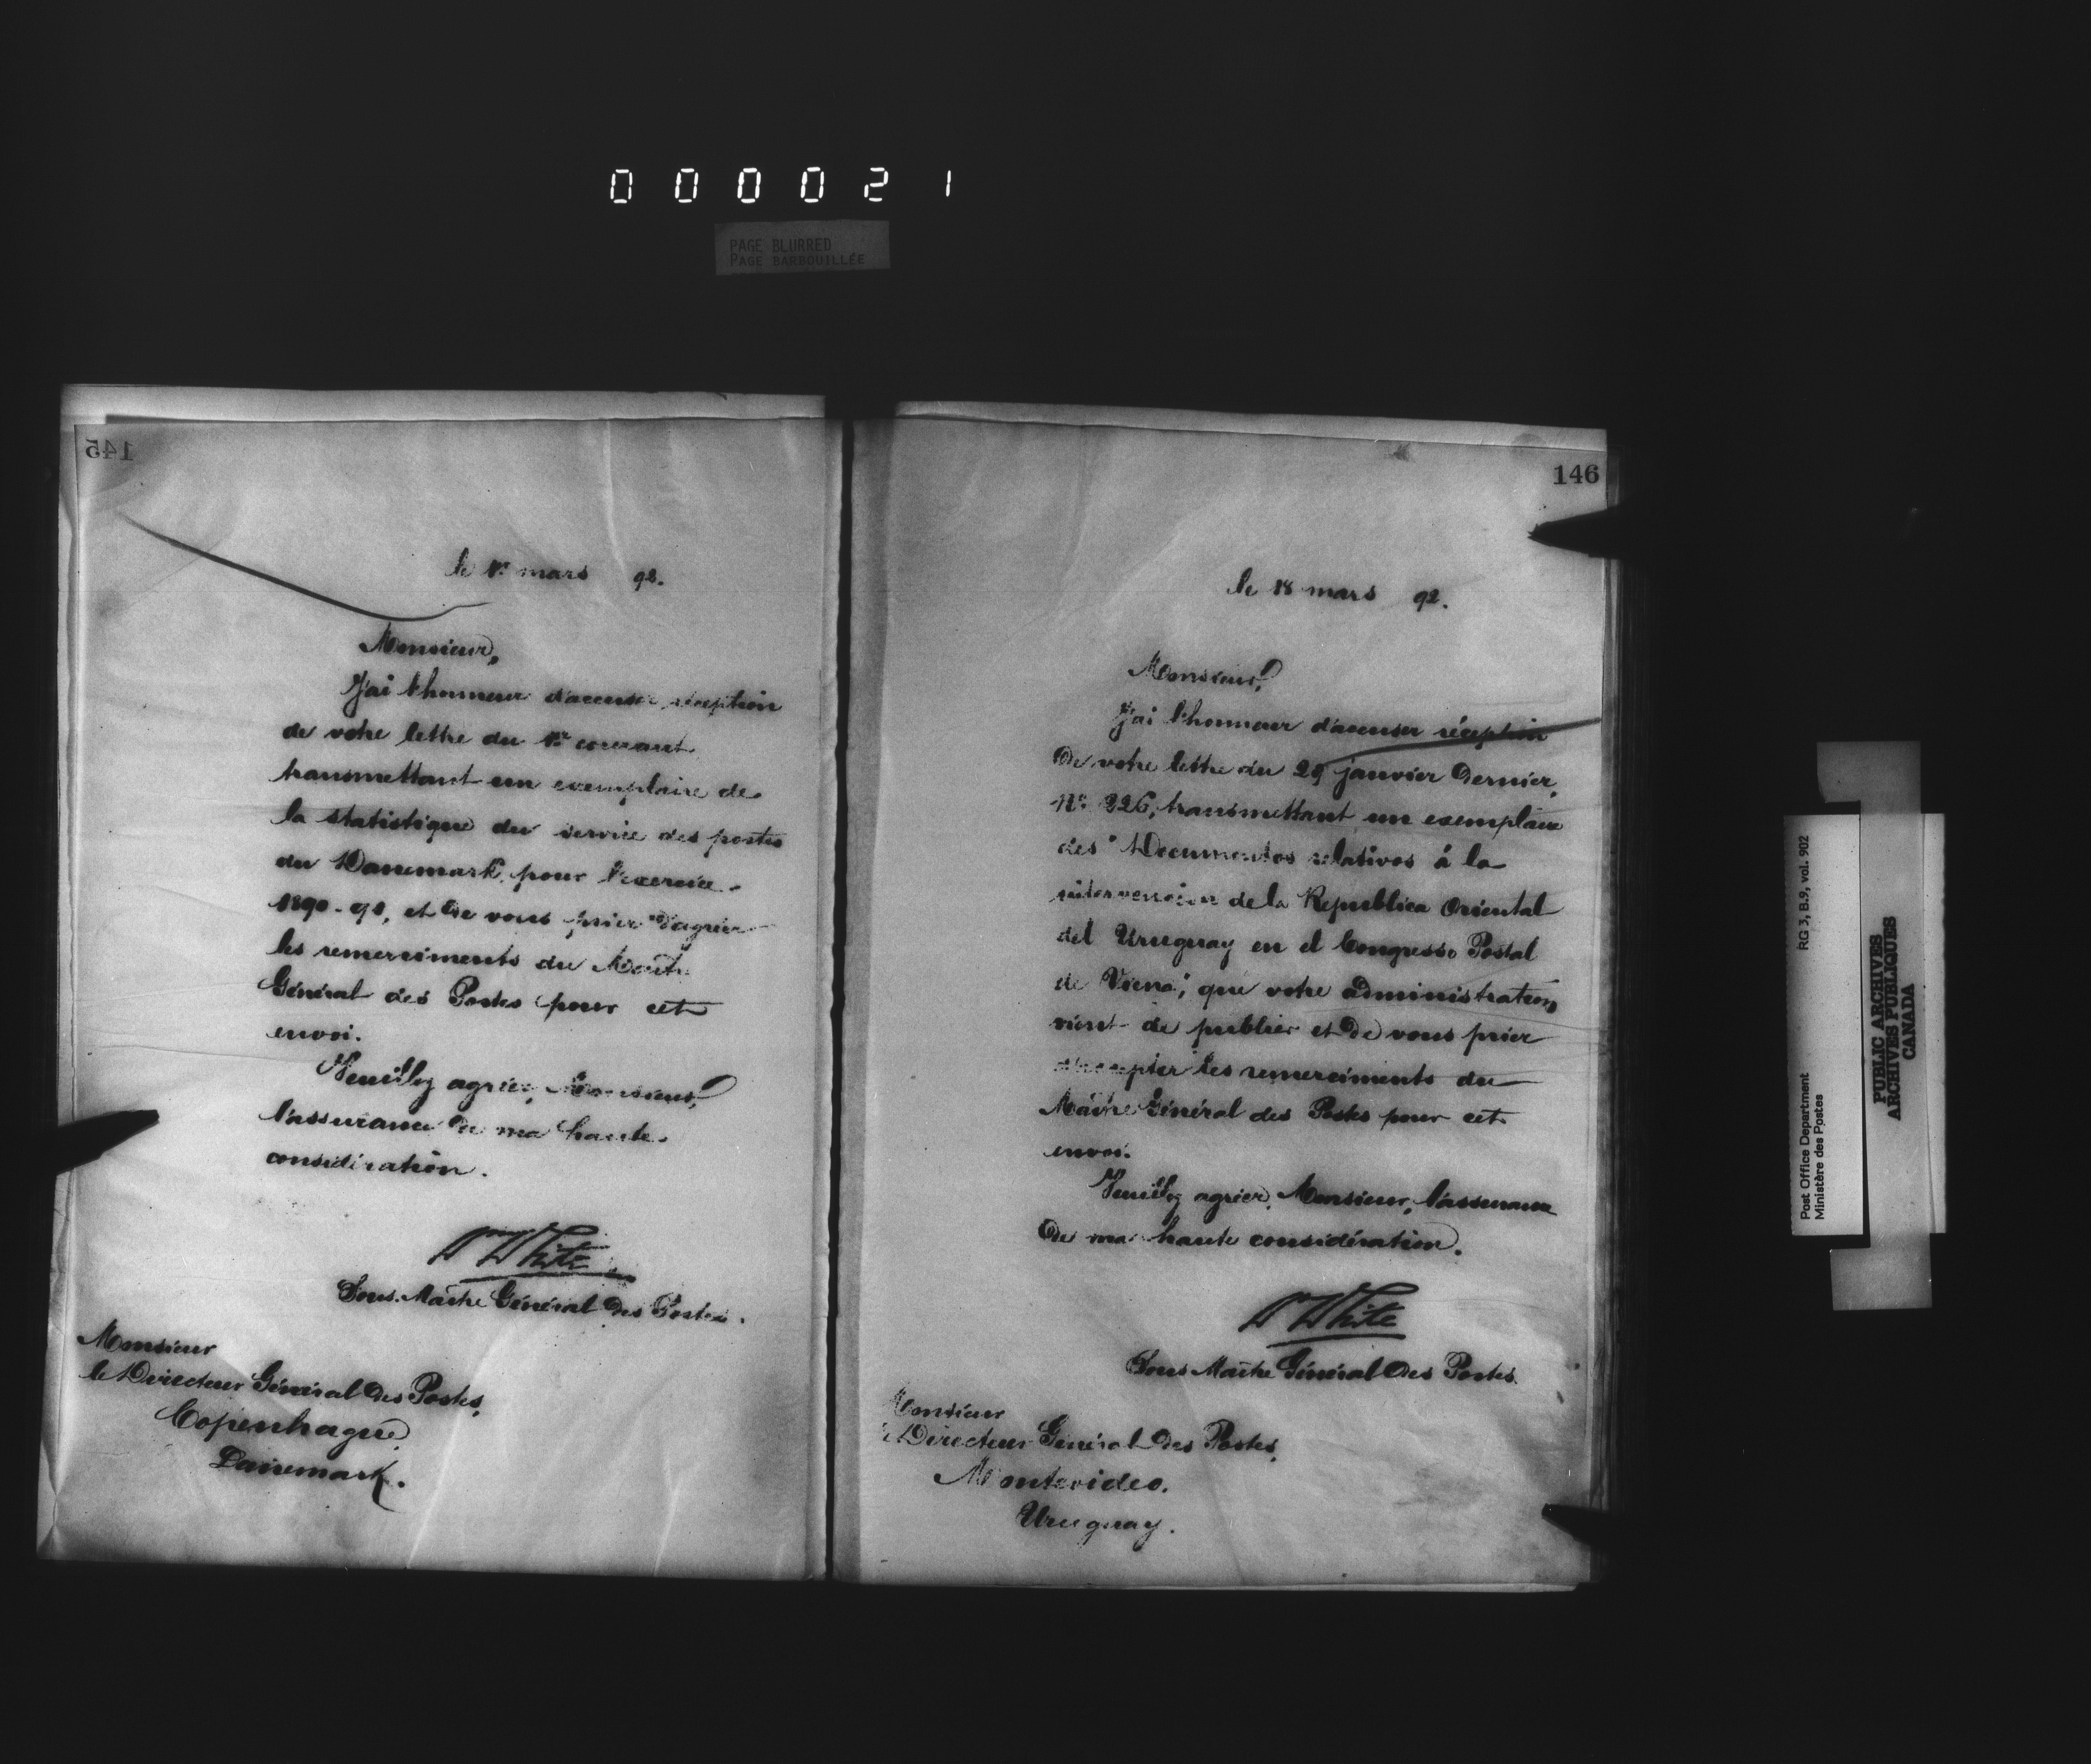 000021
PAGE BLURRED
PAGE BARBOUILLÉE
145
le mars 92.
Monsieur,
J'ai l'honneur d'accuser réception
de votre lettre du courant
transmettant un exemplaire de
la statistique du service des postes
du Danemark, pour l'exercice
1890-91, et de vous prier d'agréer
les remerciments du Maître
Général des Postes pour cet
envoi.
Veuillez agréer, Monsieur,
l'assurance de ma haute
considération.
White
Sous-Maître Général des Postes.
Monsieur
le Directeur Général des Postes,
Copenhague
Danemark.
146
le 18 mars 92.
Monsieur,
J'ai l'honneur d'accuser réception
de votre lettre du 29 janvier dernier,
No. 226, transmettant un exemplaire
des "Documentos relativos á la
intervencion de la Republica Oriental
del Uruguay en el Congreso Postal
de Viena", que votre administration
vient de publier et de vous prier
d'accepter les remerciments du
Maître Général des Postes pour cet
envoi.
Veuillez agréer, Monsieur, l'assurance
de ma haute considération.
White
Sous Maître Général des Postes.
Monsieur
le Directeur Général des Postes,
Montevideo.
Uruguay.
Post Office Department RG 3, B.9, vol. 902
Ministère des Postes
PUBLIC ARCHIVES
ARCHIVES PUBLIQUES
CANADA